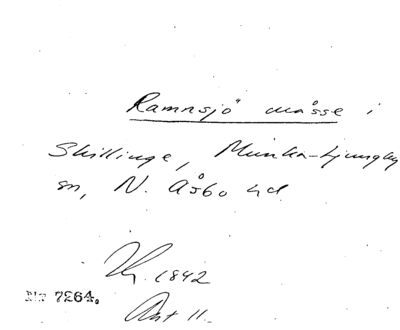 Ramnsjö måsse i
Skillinge, Munka-Ljungby
sn, N. Åsbo hd.
1842
Nr 7264.
Akt 11.